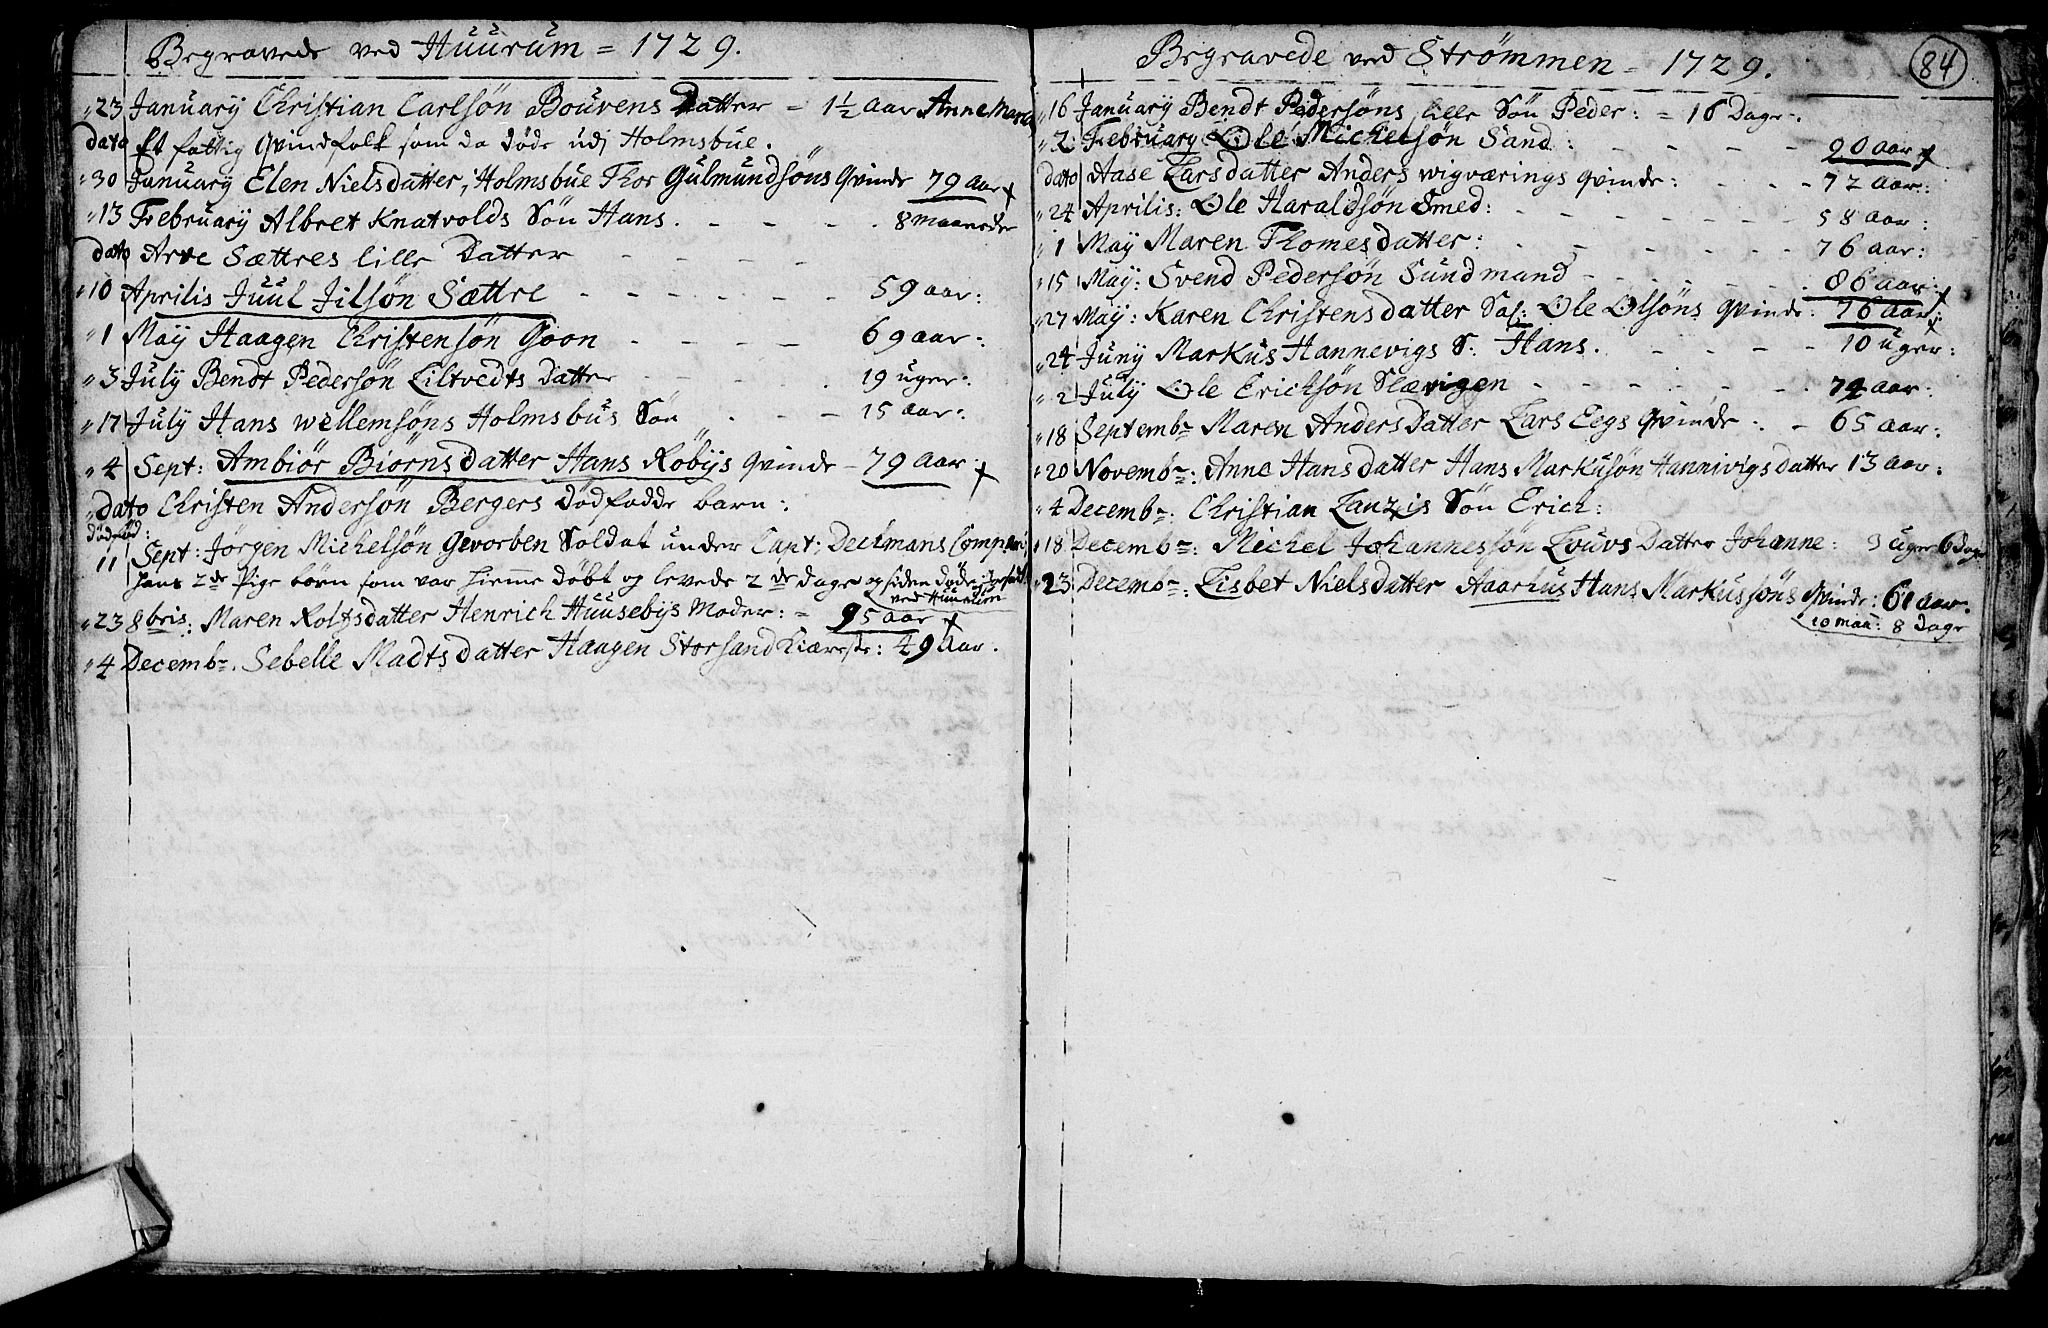 Begravede ved Huurum = 1729.
23 January Christian Carlsøn Bouvens Datter - 1½ aar Anne Maria
dato Et fattig qvindfolk som da døde udj Holmsbue.
30 January Elen Nielsdatter, Holmsbue Thor Gulmundsøns qvinde 79 aar
13 February Albret Knatvolds Søn Hans. 8 maaneder
dato Arve Sættres lille Datter
10 Aprilis Juul Jilsøn Sættre 59 aar:
1 Maÿ Haagen Christensøn Goon 69 aar:
3 July Bendt Pedersøn Liltvedts Datter 19 uger:
17 July Hans Wellemsøns Holmsbus Søn 15 aar:
4 Sept: Ambiør Biørnsdatter Hans Røbÿs qvinde - 79 aar
dato Christen Andersøn Bergers dødfødde barn:
dødfød:
11 Sept: Jørgen Michelsøn Gevorben Soldat under Capt: Deckmans Comp:
hans 2de pige børn som var hiemme døbt og levede 2de dage og siden døde
ved Huurum
23 8bris: Maren Rolfsdatter Henrich Huusebÿs Moder: = 95 aar
4 Decembr. Sebelle Madtsdatter Haagen Storsand Kiæreste: 49 Aar.
Begravede ved Strømmen = 1729.
84
16 January Bendt Pedersøns lille Søn Peder: = 16 Dage.
2 February Ole Michelsøn Sand: 90 aar
dato Aase Larsdatter Anders Wigværings qvinde: 72 aar:
24 Aprilis: Ole Haraldsøn Smed: 58 aar:
1 Maÿ Maren Thomesdatter: 76 aar:
15 Maÿ: Svend Pedersøn Sundmand 86 aar:
27 Maÿ: Karen Christensdatter Sal: Ole Olsøns qvinde: 76 aar:
24 Juny Markus Hannevigs S: Hans. 10 uger:
2 July Ole Ericksøn Slævigen 72 aar:
18 Septembr Maren Andersdatter Lars Eegs qvinde: - 65 aar:
20 Novembr: Anne Hansdatter Hans Markusøn Hannivigs datter 13 aar:
4 Decembr: Christian Lanzis Søn Erich:
18 Decembr: Michel Johannessøn Louvs Datter Johanne: 3 uger 6 dage
23 Decembr: Lisbet Nielsdatter Aaarhus Hans Markussøns qvinde: 61 aar.
10 maa: 8 Dage